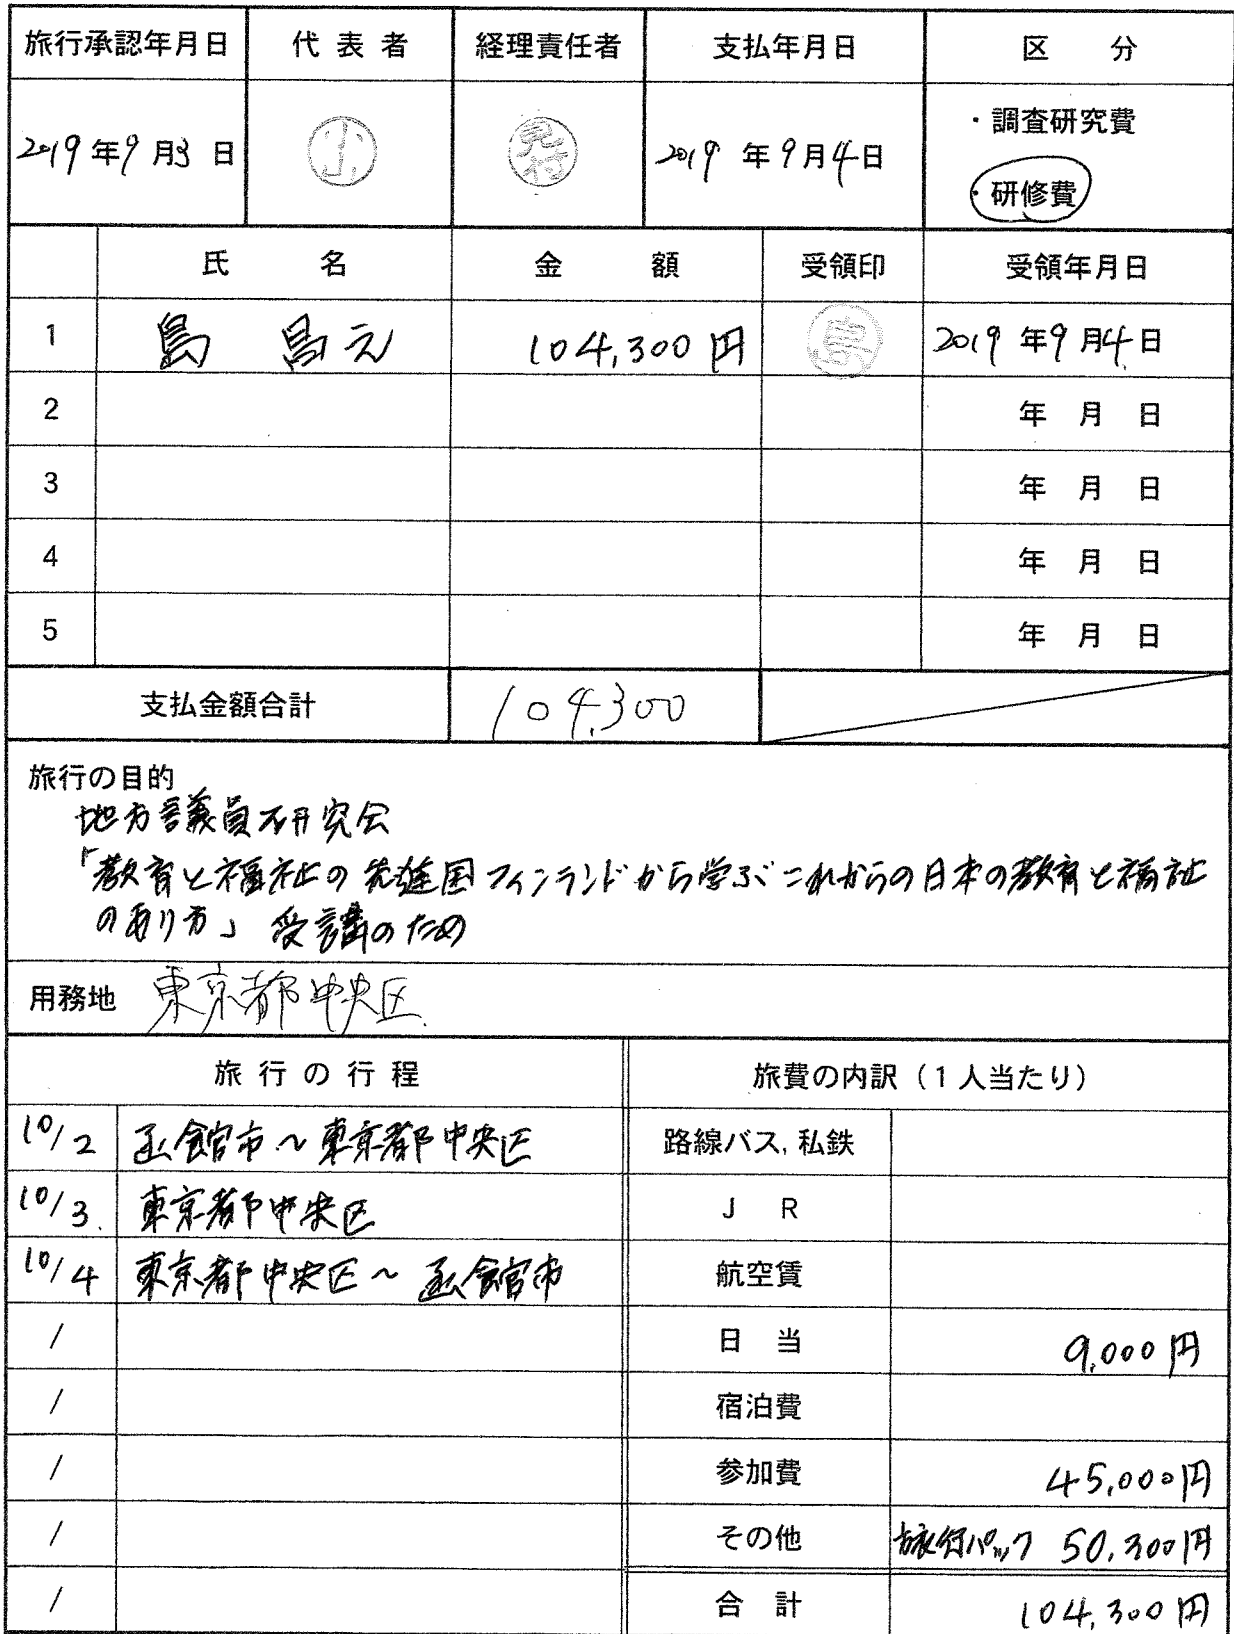 旅行承認年月日 代表者 経理責任者 支払年月日 区分
2019年9月3日 小 見付 2019年9月4日
・調査研究費
・研修費
氏名 金額 受領印 受領年月日
1 島 昌之 104,300円 島 2019年9月4日
2 年 月 日
3 年 月 日
4 年 月 日
5 年 月 日
支払金額合計 104,300
旅行の目的
地方議員研究会
「教育と福祉の先進国フィンランドから学ぶこれからの日本の教育と福祉
のあり方」受講のため
用務地 東京都中央区
旅行の行程 旅費の内訳（1人当たり）
10/2 函館市～東京都中央区 路線バス,私鉄
10/3 東京都中央区 JR
10/4 東京都中央区～函館市 航空賃
/ 日当 9,000円
/ 宿泊費
/ 参加費 45,000円
/ その他 旅行パック 50,300円
/ 合計 104,300円